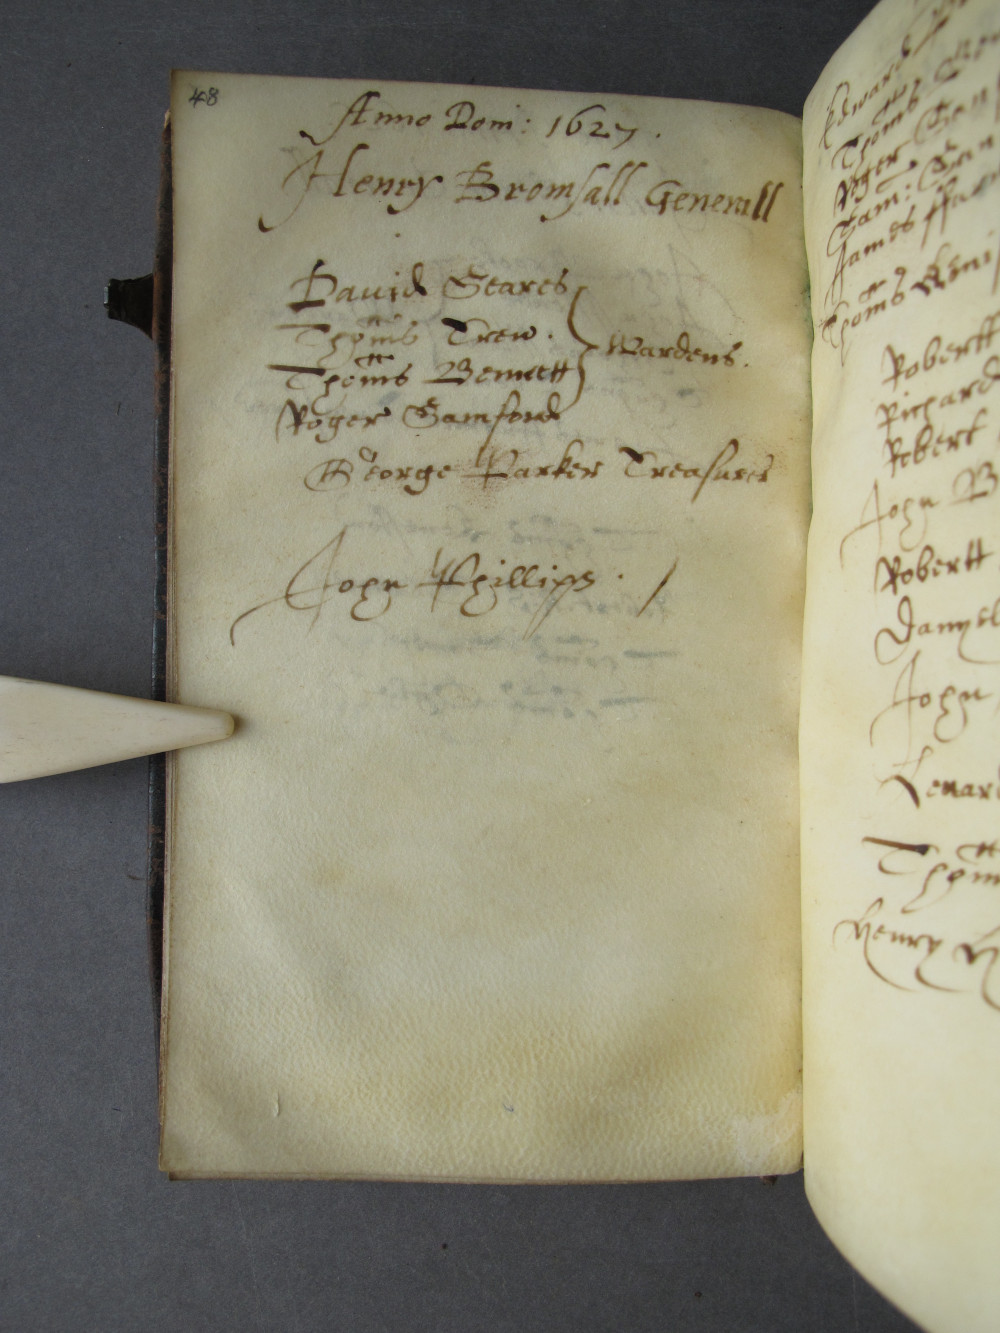 48
Anno Dom: 1627.
Henry Bromsall Generall
David Seares
Thoms Trew.
Wardens.
Thoms Bennett
Roger Samford
George Parker Treasurer
John Phillips.
Edward
Thoms
Roger
Sam:
James
Thoms
Robertt
Richard
Robert
John B
Robertt
Danyel
John
Lenard
Thoms
Henry